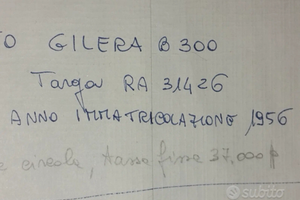 TO GILERA B 300
Targa RA 31426
ANNO IMMATRICOLAZIONE 1956
e circola, tassa fissa 37,000
subito